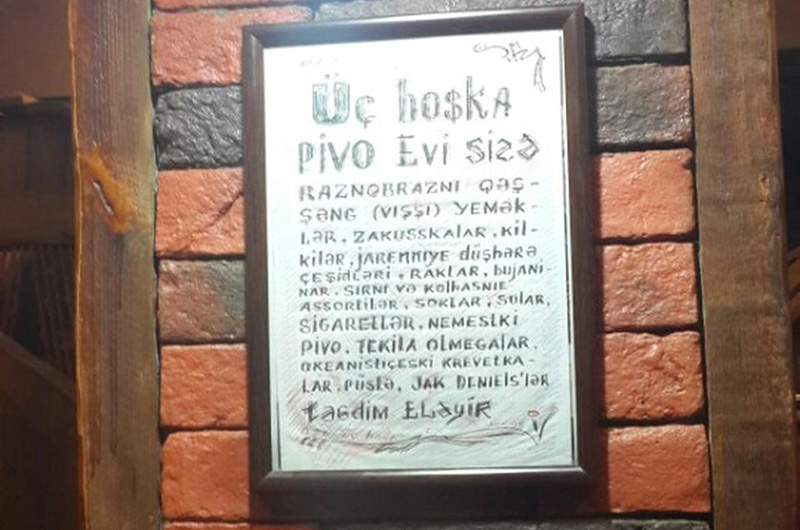 Üç boşka
PİVO Evi Sizə
RAZNOBRAZNI QƏŞ-
ŞƏNG (VIŞŞI) YEMƏK-
LƏR, ZAKUSSKALAR, KİL-
kilər, jarennıye düşbərə
ÇEŞİDLƏRİ, RAKLAR, bujani-
NAR, SIRNI və KOlbASNIE
ASSORTİLƏR, SOKLAR, SULAR,
SİGARETLƏR, NEMESKİ
PİVO, TEKİLA OLMEGALAR,
OKEANİSTİÇESKİ KREVETKA-
LAR, PÜSTƏ, JAK DENIELS'lƏR
təqdim ELƏyİR